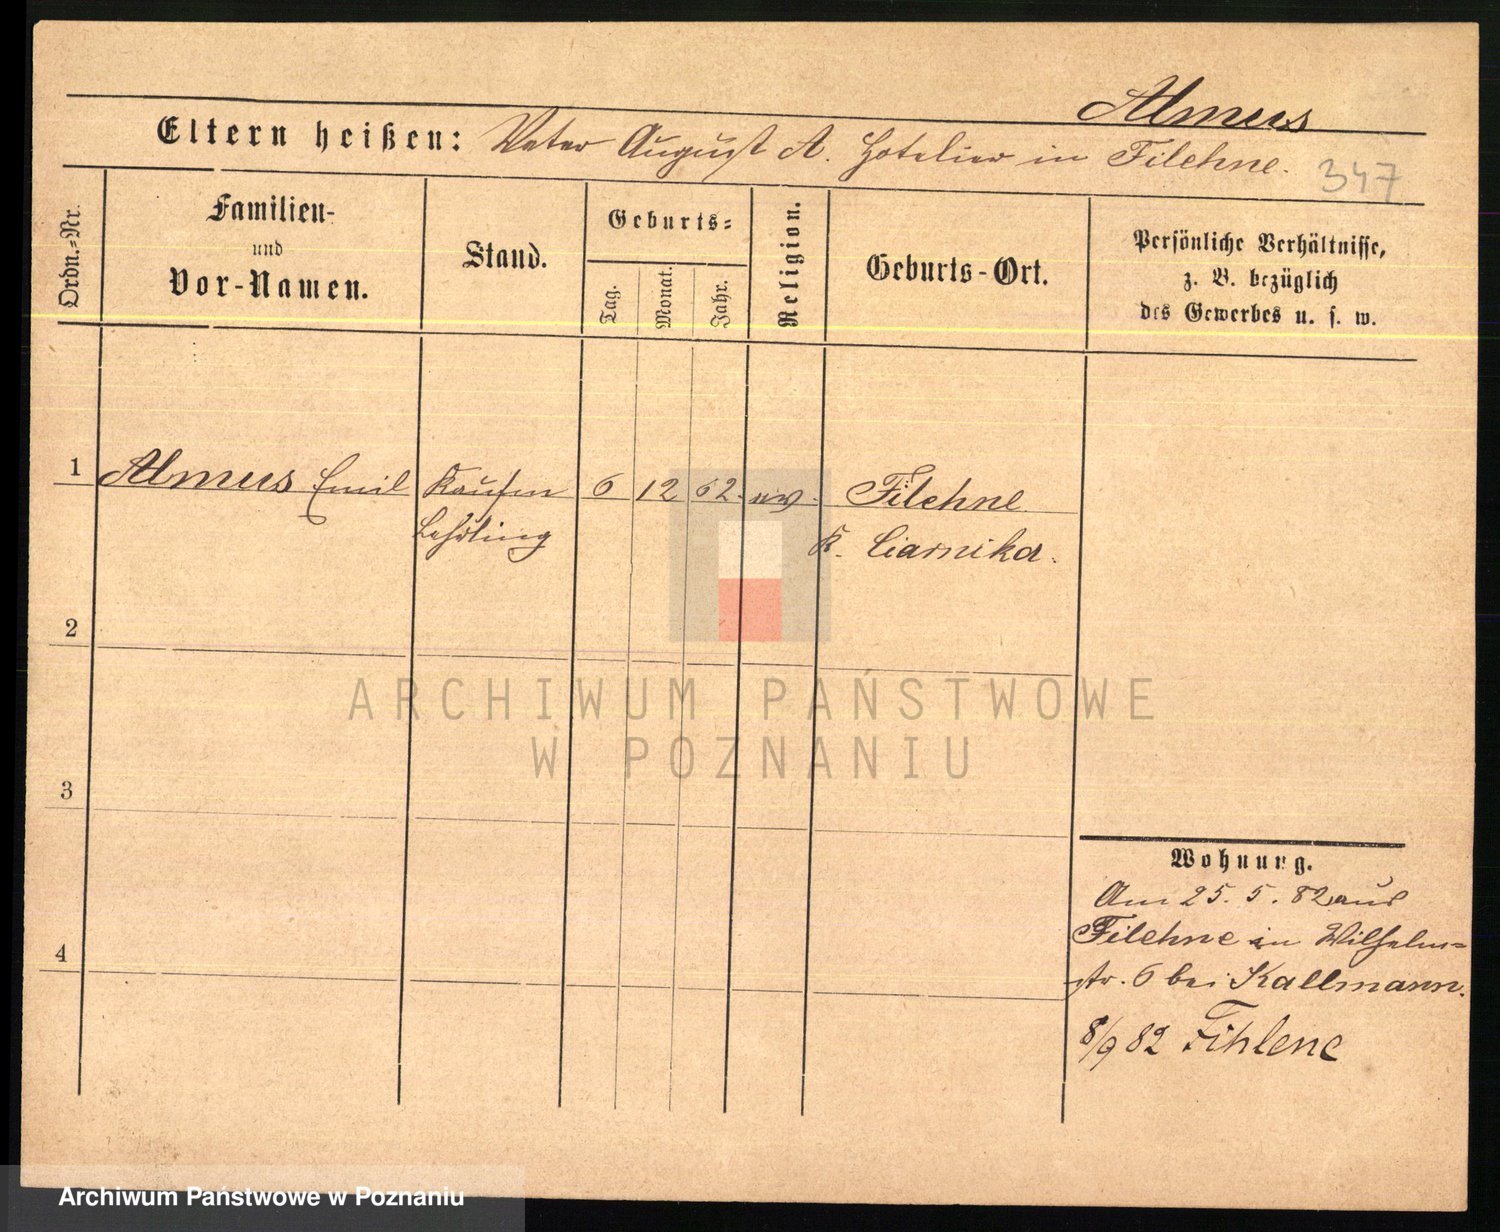 Almus
Eltern heißen: Vater August A. Hotelier in Filehne.
347
Ordn.=Nr.
Familien-
und
Vor-Namen.
Stand.
Geburts=
Tag.
Monat.
Jahr.
Religion.
Geburts-Ort.
Persönliche Verhältnisse,
z. B. bezüglich
des Gewerbes u. s. w.
1 Almus Emil Kaufm 6 12 62. ev. Filehne
Lehrling K. Czarnikau.
2
ARCHIWUM PAŃSTWOWE
W POZNANIU
3
Wohnung.
Am 25. 5. 82 aus
Filehne in Wilhelm=
str. 6 bei Kallmann.
4
8/9 82 Fihlene
Archiwum Państwowe w Poznaniu